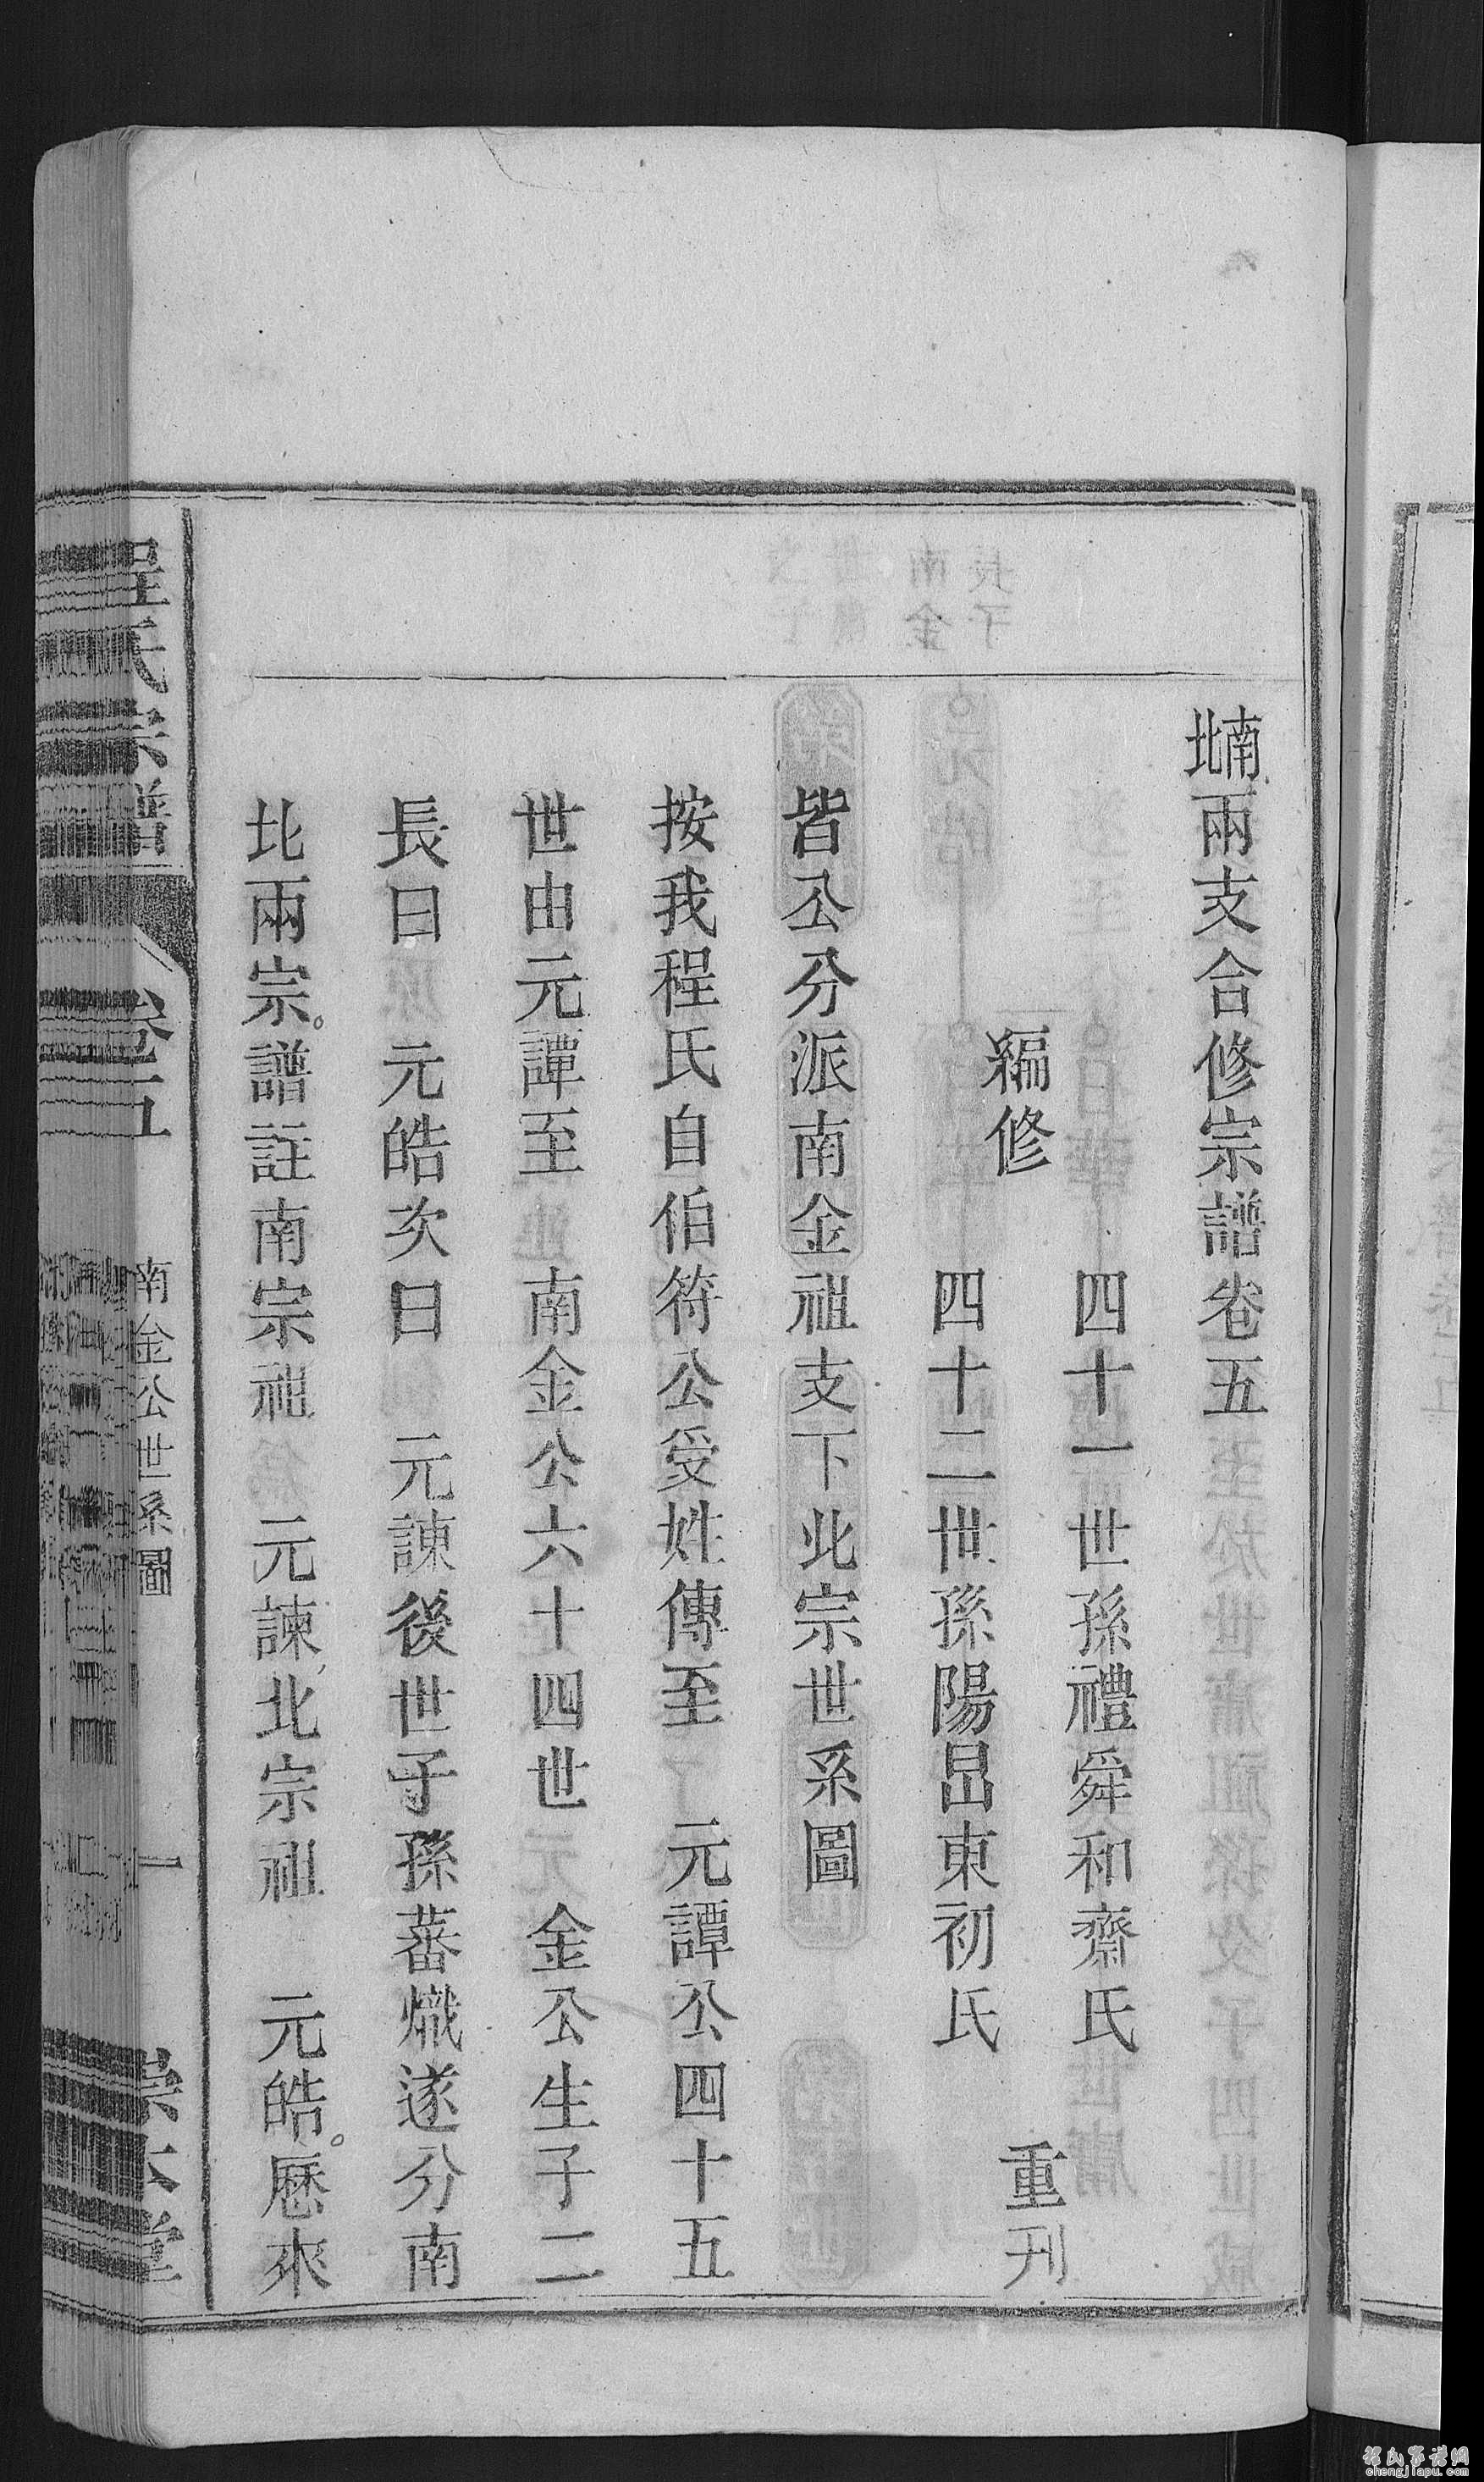 南北兩支合修宗譜卷五
四十一世孫禮舜和齋氏
編修
重刊
四十二世孫陽昌東初氏
皆公分派南金祖支下北宗世系圖
按我程氏自伯符公受姓傳至 元譚公四十五
世由元譚至 南金公六十四世 金公生子二
長曰 元皓次曰 元諫後世子孫蕃熾遂分南
北兩宗。譜註南宗祖 元諫北宗祖 元皓。歷來
程氏宗譜 卷五 南金公世系圖 一 崇本堂
程氏家譜網
chengjiapu.com